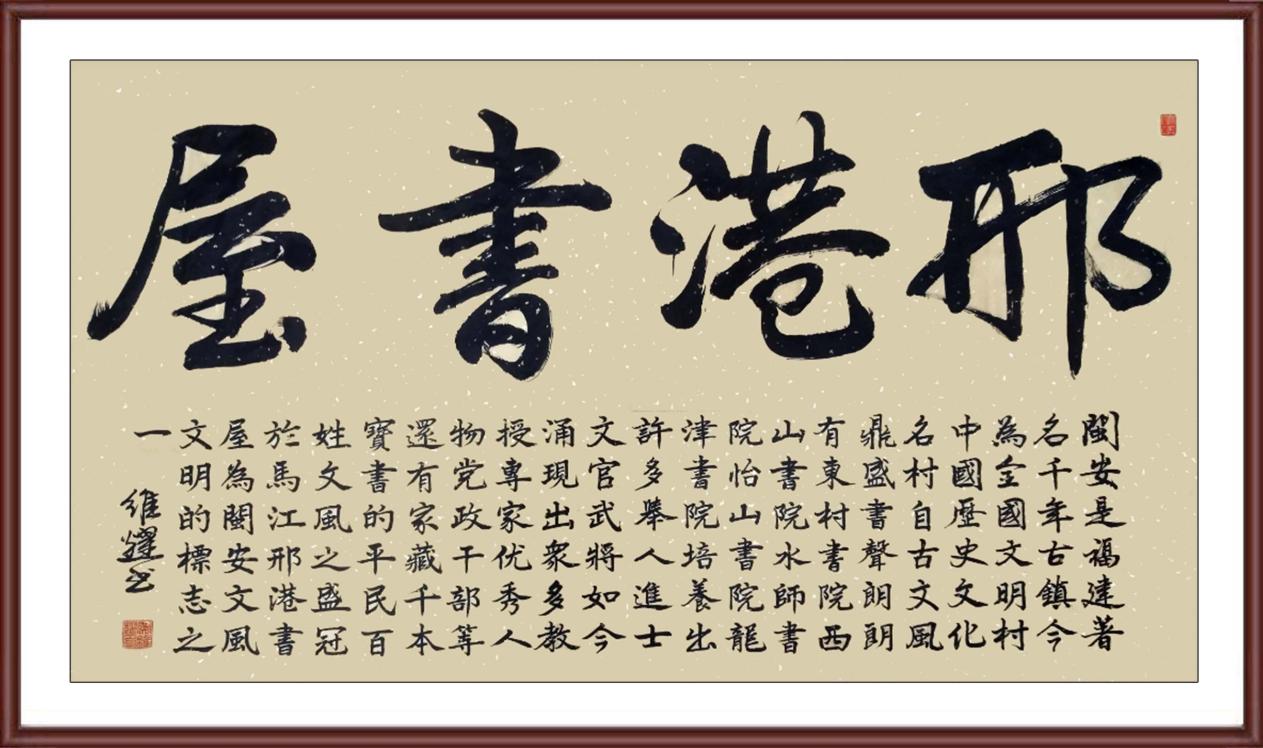 邢港書屋
閩安是福建著
名千年古鎮今
為全國文明村
中國歷史文化
名村自古文風
鼎盛書聲朗朗
有東村書院西
山書院水師書
院怡山書院龍
津書院培養出
許多舉人進士
文官武將如今
涌現出衆多教
授專家优秀人
物党政干部等
還有家藏千本
寳書的平民百
姓文風之盛冠
於馬江邢港書
屋為閩安文風
文明的標志之
一
維耀书